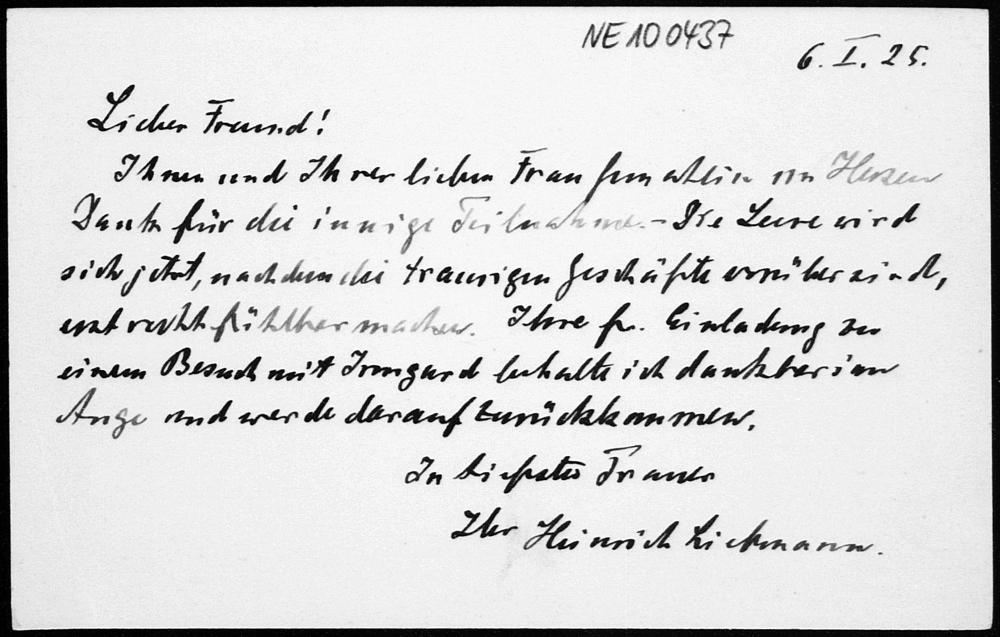 NE100437
6. I. 25.
Lieber Freund!
Ihnen und Ihrer lieben Frau Gemahlin von Herzen
Dank für die innige Teilnahme. – Die Leere wird
sich jetzt, nachdem die traurigen Geschäfte vorüber sind,
erst recht fühlbar machen. Ihre fr. Einladung zu
einem Besuch mit Irmgard behalte ich dankbar im
Auge und werde darauf zurückkommen.
In tiefster Trauer
Ihr Heinrich Liebmann.